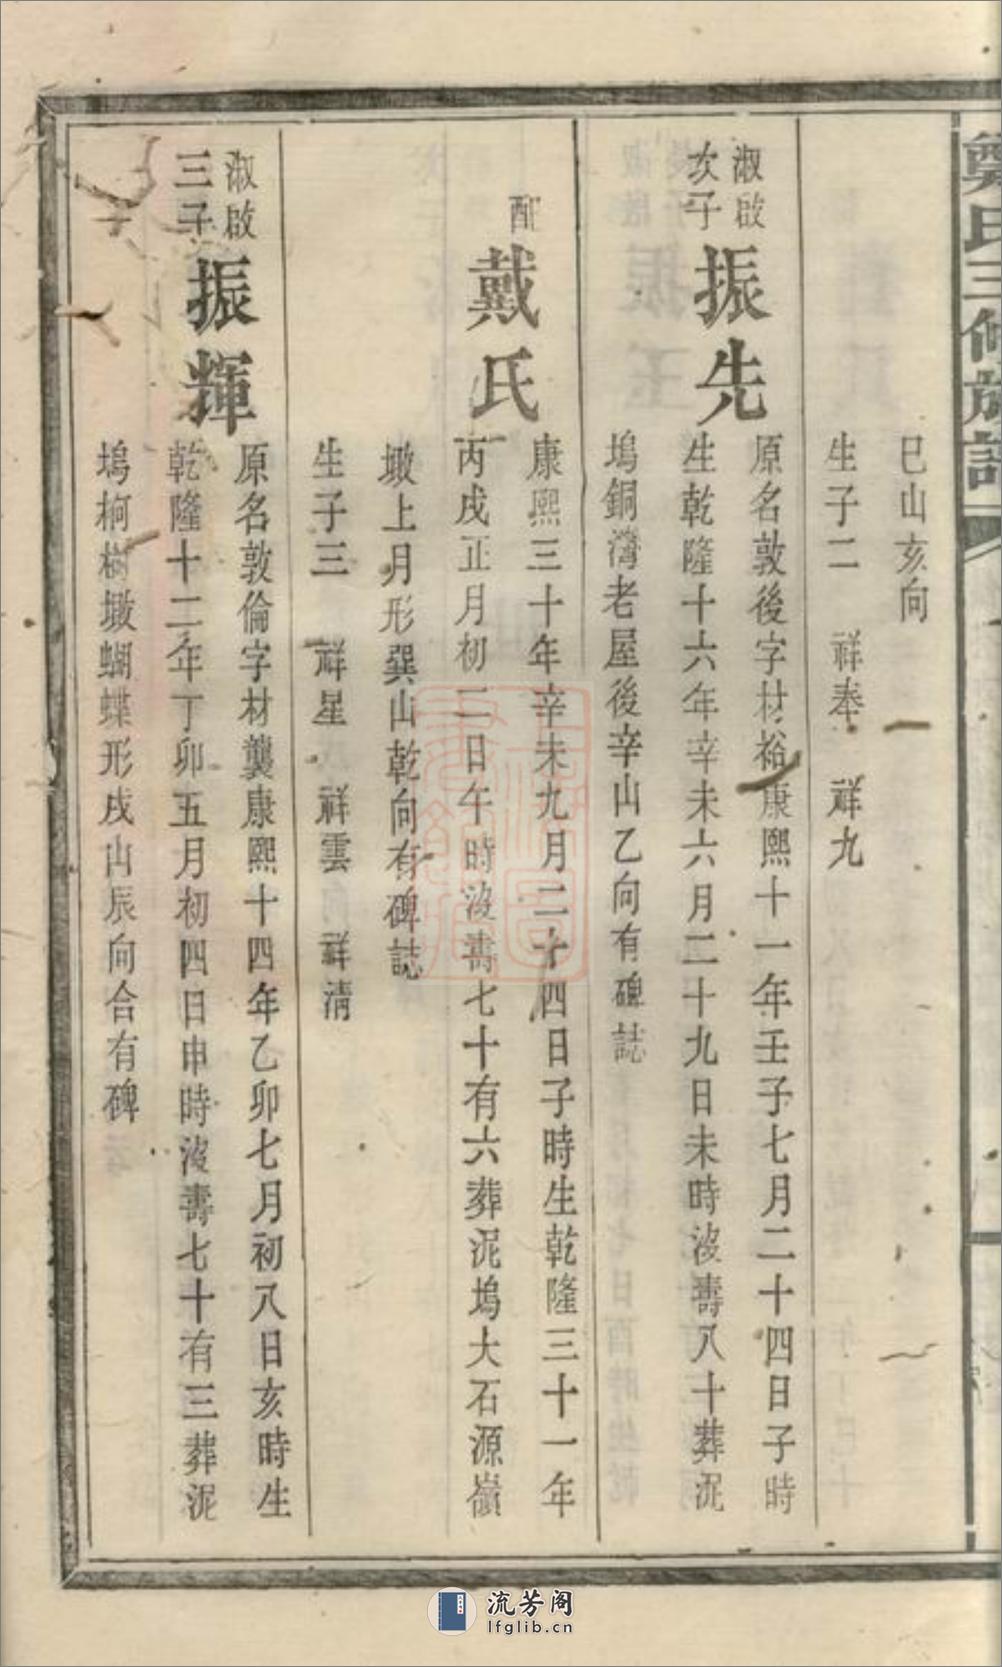 鄭氏三修族譜
巳山亥向
生子二　祥奉　祥九
淑啟
次子
振先
原名敦後字材裕康熙十一年壬子七月二十四日子時
生乾隆十六年辛未六月二十九日未時沒壽八十葬泥
塢銅灣老屋後辛山乙向有碑誌
配
戴氏
康熙三十年辛未九月二十四日子時生乾隆三十一年
丙戌正月初二日午時沒壽七十有六葬泥塢大石源嶺
墩上月形巽山乾向有碑誌
生子三　祥星　祥雲　祥清
淑啟
三子
振輝
原名敦倫字材龔康熙十四年乙卯七月初八日亥時生
乾隆十二年丁卯五月初四日申時沒壽七十有三葬泥
塢桐樹墩蝴蝶形戌山辰向合有碑
流芳阁
lfglib.cn